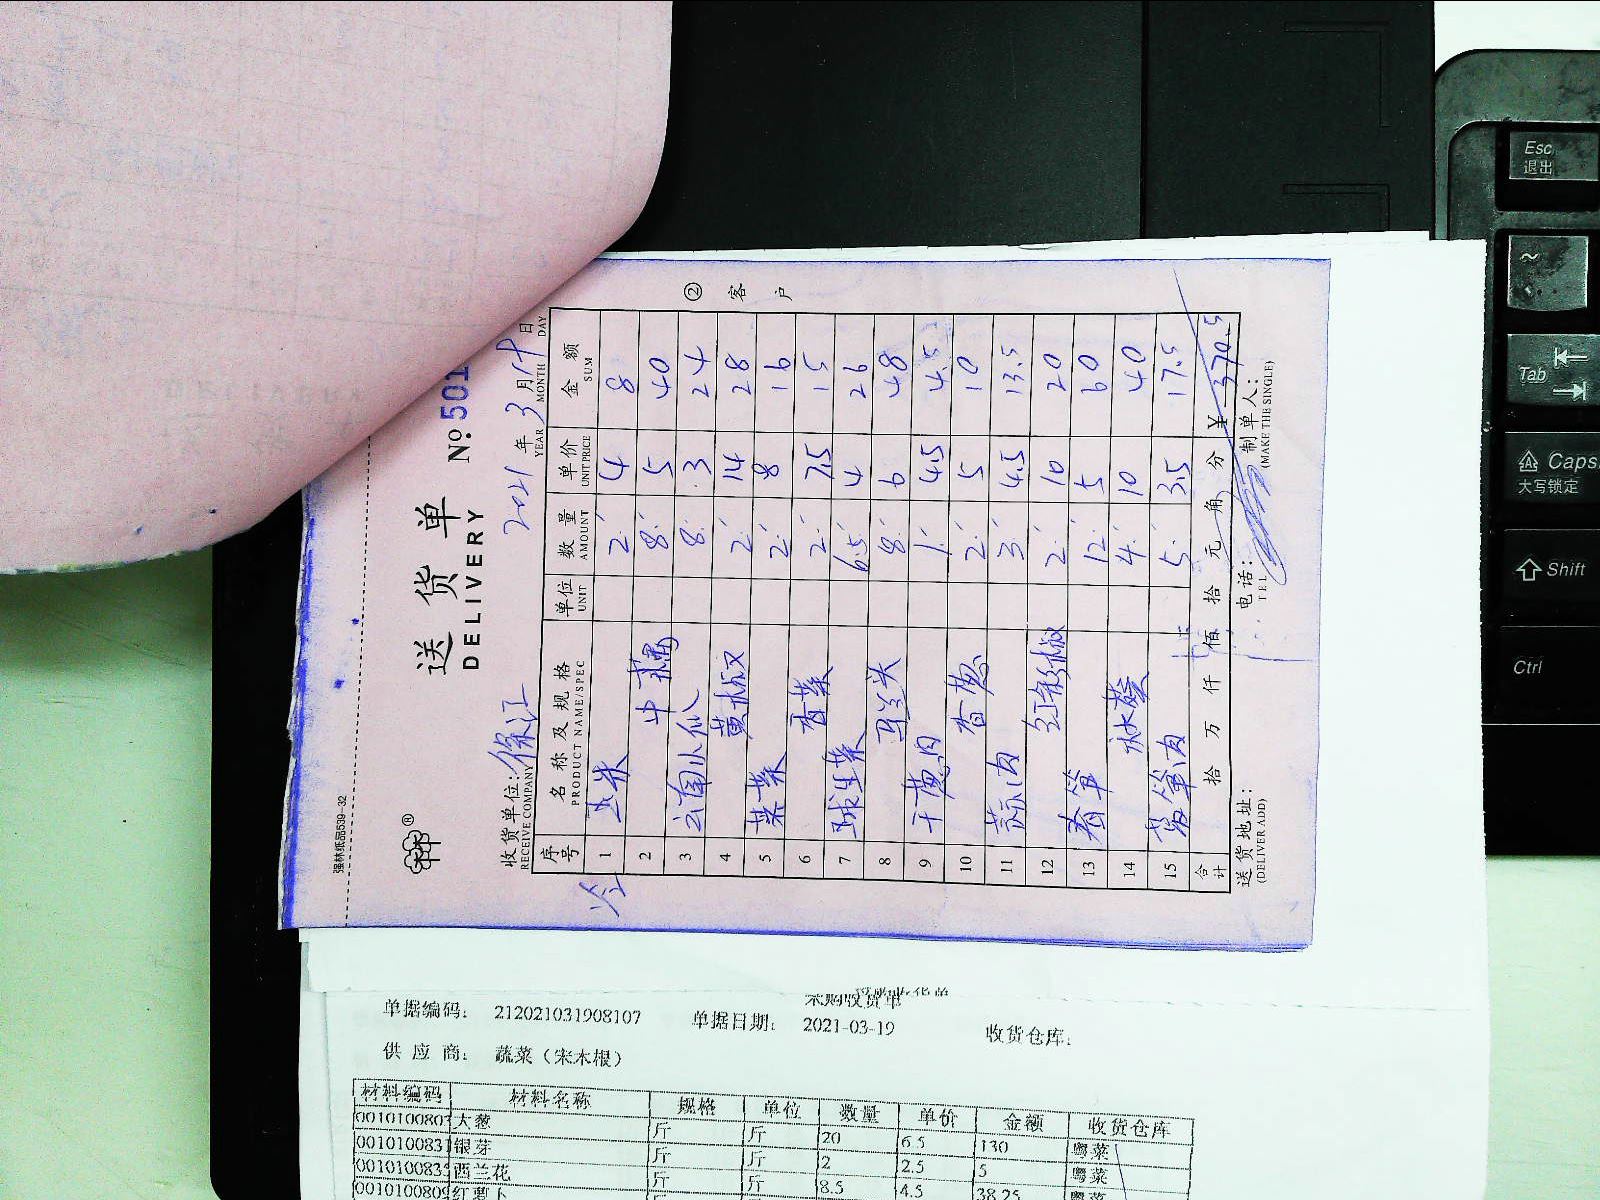 强林纸品539-32
送 货 单
DELIVERY
№ 501
② 客 户
收货单位:
RECEIVE COMPANY
2021 年 3 月 19 日
YEAR MONTH DAY
序号 名称及规格 单位 数量 单价 金额
PRODUCT NAME/SPEC UNIT AMOUNT UNIT PRICE SUM
1 2 4 8
2 8 5 40
3 云南小瓜 8 3 24
4 2 14 28
5 2 8 16
6 香菜 2 7.5 15
7 球生菜 6.5 4 26
8 马兰头 8 6 48
9 干葱肉 1 4.5 4.5
10 香葱 2 5 10
11 蒜肉 3 4.5 13.5
12 2 10 20
13 春笋 12 5 60
14 4 10 40
15 莴笋肉 5 3.5 17.5
合计 拾 万 仟 佰 拾 元 角 分 ¥ 370.5
送货地址: 电话: 制单人:
(DELIVER ADD) TEL (MAKE THE SINGLE)
采购收货单
单据编码: 212021031908107 单据日期: 2021-03-19 收货仓库:
供 应 商: 蔬菜（宋木根）
材料编码 材料名称 规格 单位 数量 单价 金额 收货仓库
0010100803 大葱 斤 斤 20 6.5 130 粤菜
001010083 银芽 斤 斤 2 2.5 5 粤菜
001010083 西兰花 斤 斤 8.5 4.5 38.25 粤菜
001010080 红萝卜
Esc
退出
~
Tab
Caps
大写锁定
Shift
Ctrl